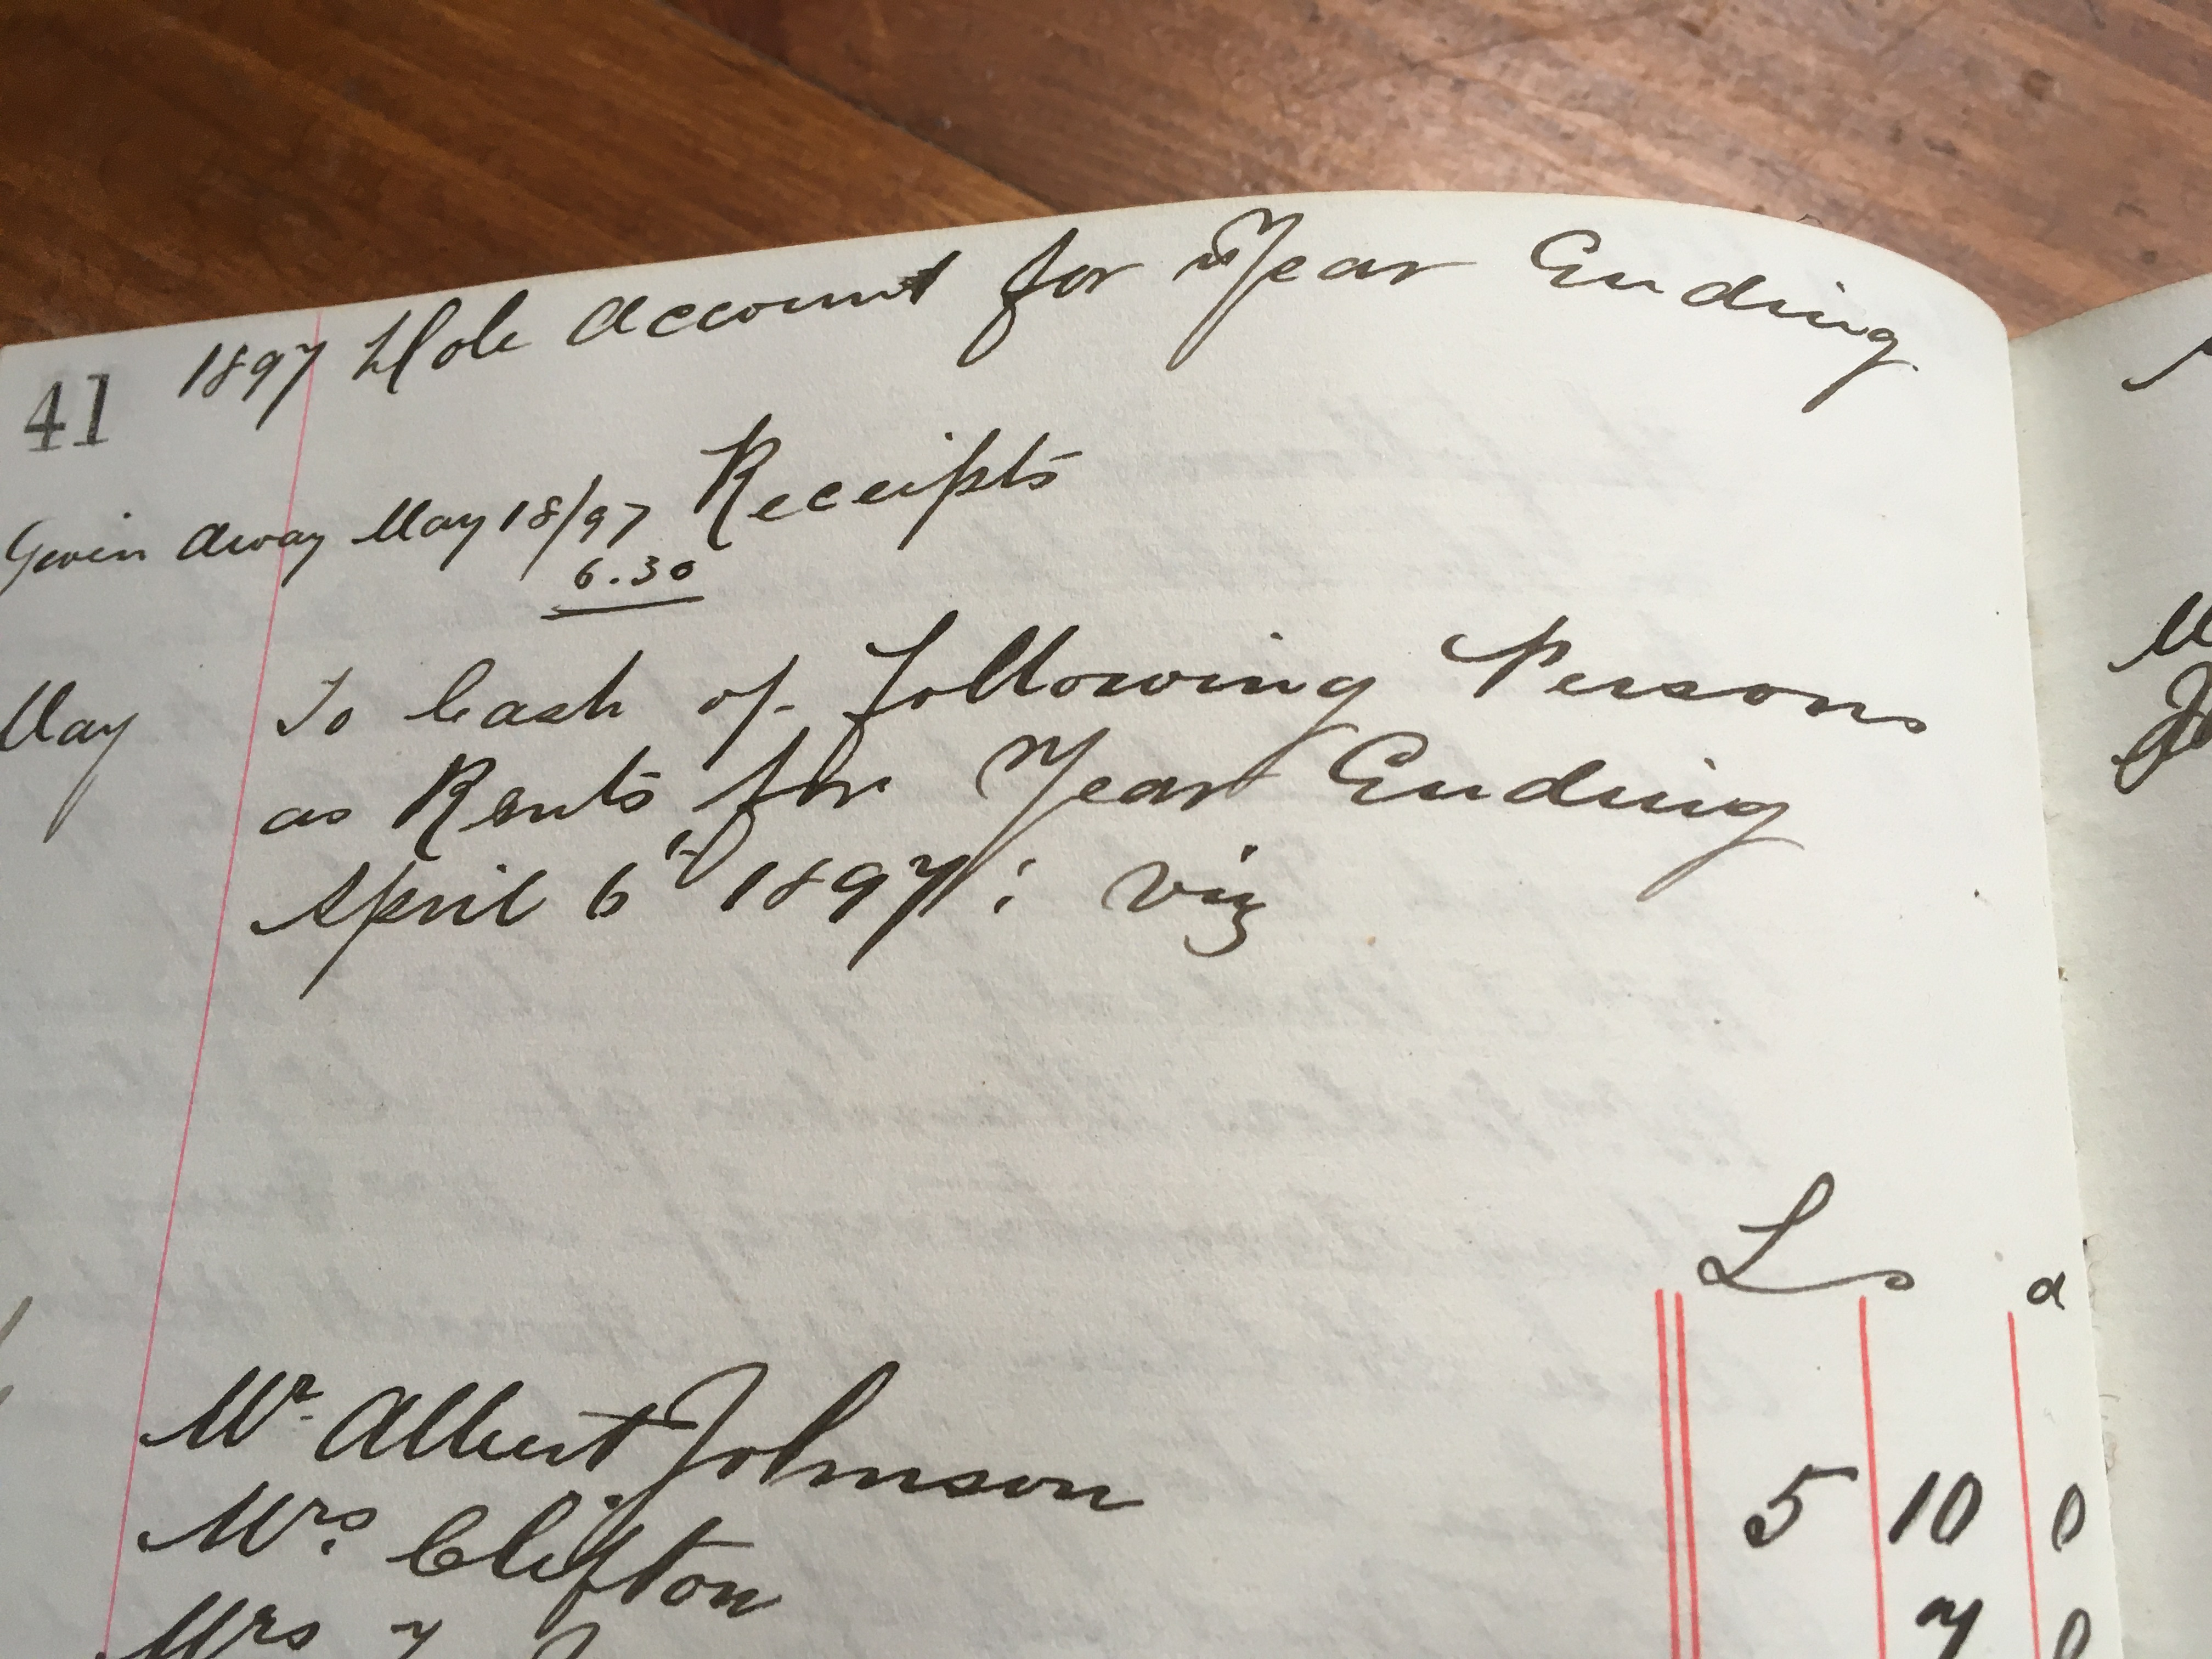 41 1897 Dole Account for Year Ending
Givin Away May 18/97 Receipts
6.30
May To Cash of Following Persons
as Rents for Year Ending
April 6th 1897: viz
L s d
Mr. Albert Johnson 5 10 0
Mrs. Clifton 7 0
Mrs